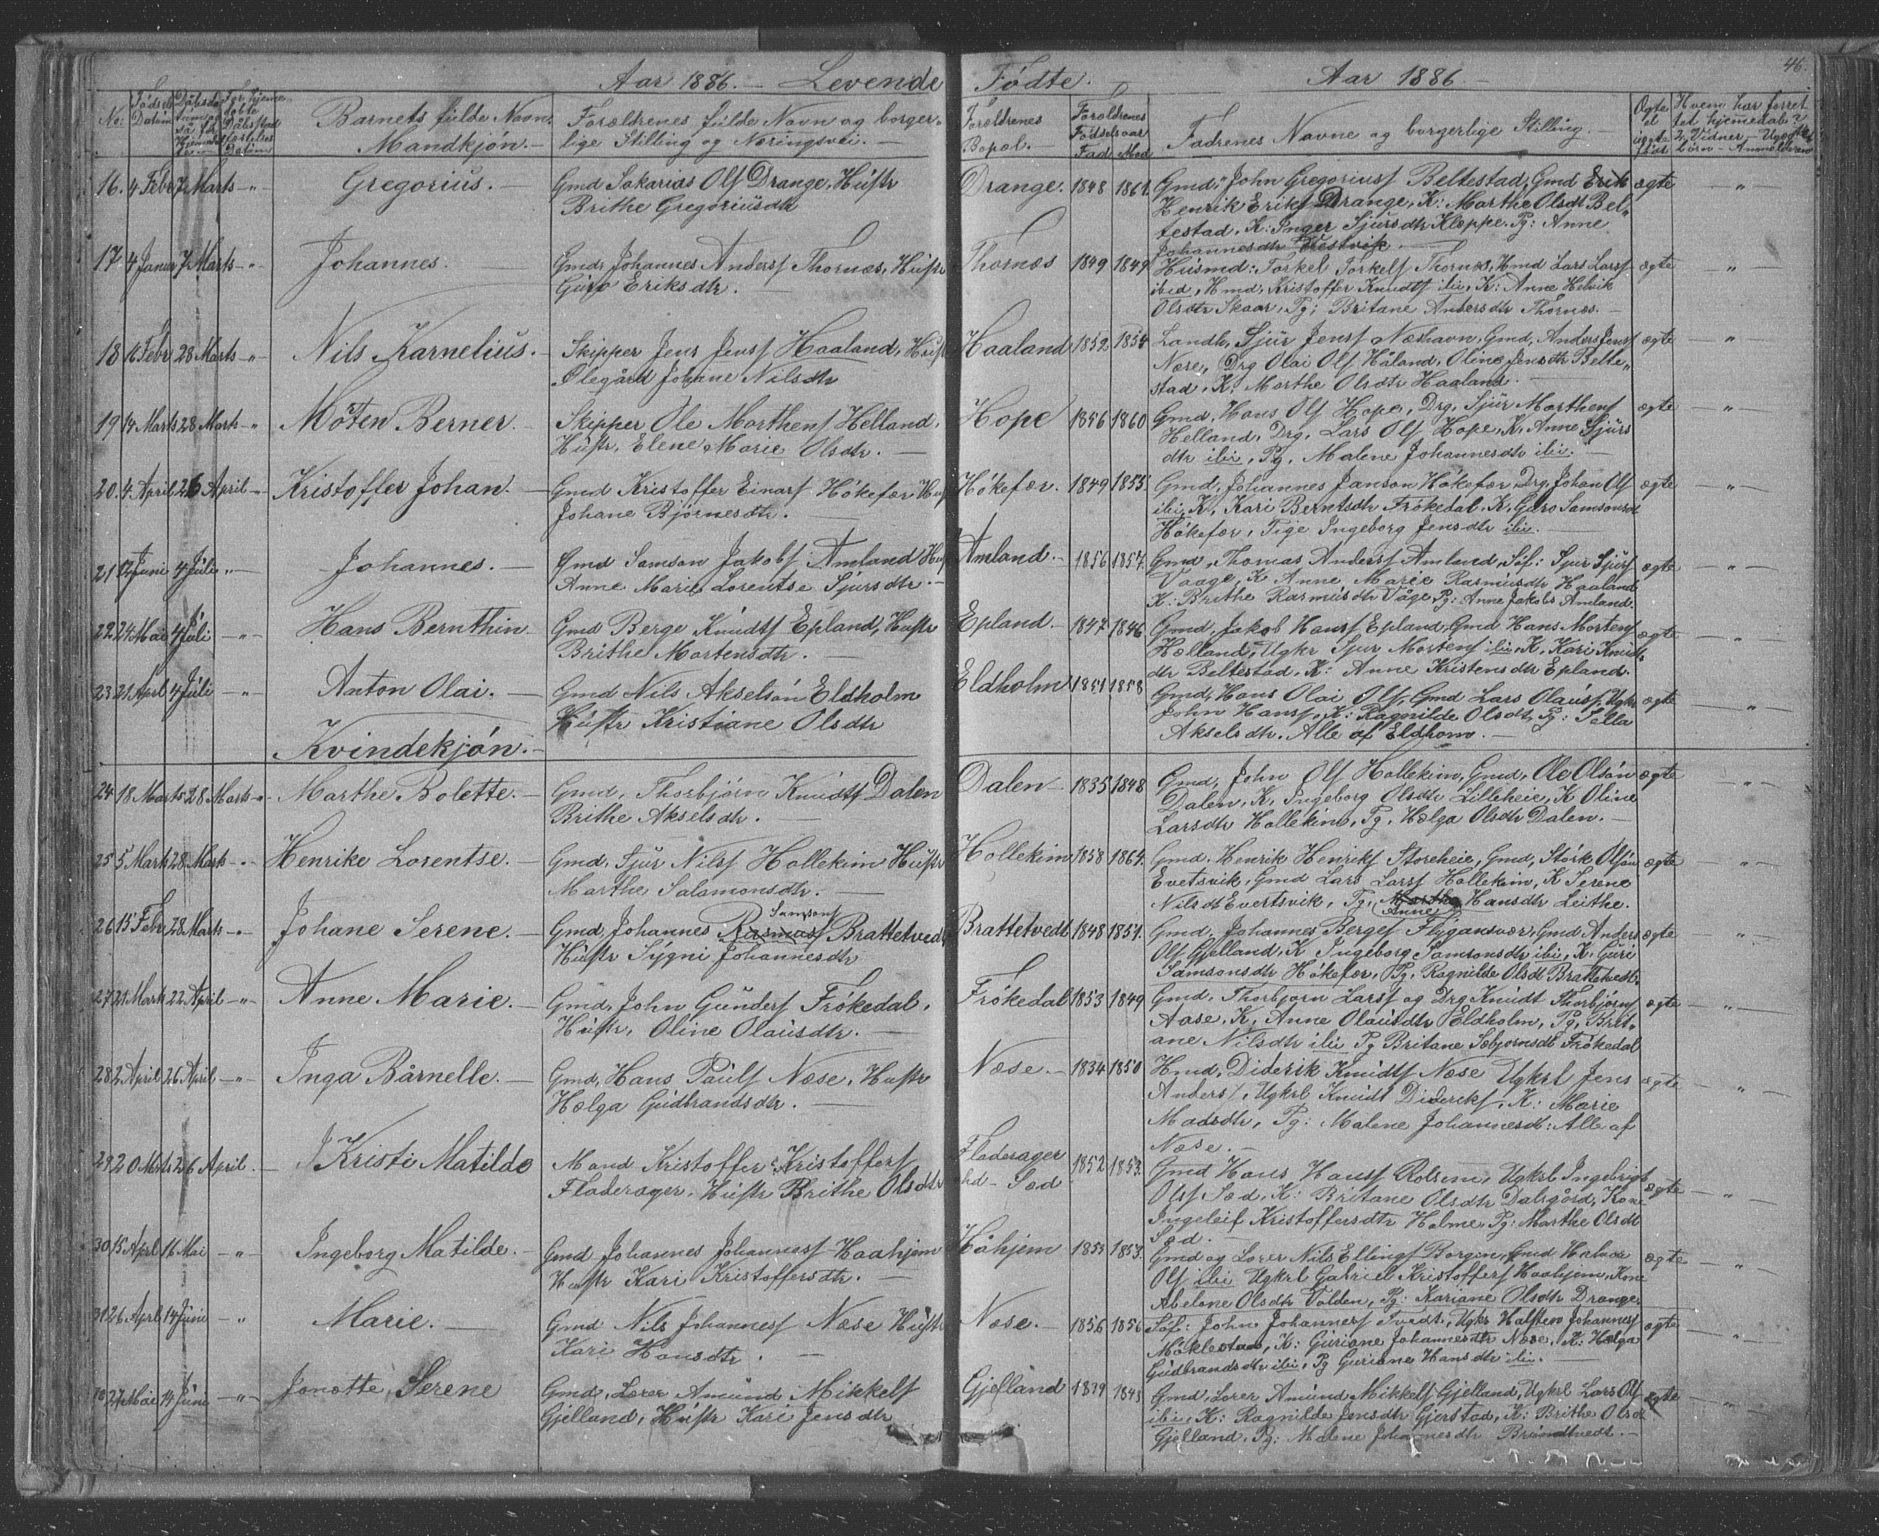 Aar 1886. — Levende Fødte. Aar 1886. —
46.
No: Fødsels Datum
Barnets fulde Navn.
Mandkjøn. —
Forældrenes fulde Navn og borger-
lige Stilling og Næringsvei. —
Forældrenes
Bopæl. —
Forældrenes
Fødselsaar
Fad. Mod.
Fadrenes Navne og borgerlige Stilling.
16. 4 Febr 7 Marts -"- Gregorius. —
Gmd Sakarias Ols Drange, Hustr
Brithe Gregoriusdtr
Drange. 1848 1861
Gmd, John Gregoriuss Beltestad, Gmd Erik
Henrik Eriks Drange, K: Marthe Olsdt Bel-
testad, K: Inger Sjursdtr Kleppe. Pg: Anne
Johannesdtr
ægte -"-
17. 4 Januar 7 Marts -"- Johannes. —
Gmd, Johannes Anders Thornæs, Hustr
Guro Eriksdtr. —
Thornæs 1849 1849
Husmd: Torkel Torkels Thornæs, Hmd Lars Larss
ibid, Hmd, Kristoffer Knudts ibi, K: Anne Henrik
Olsdtr Skaar, Pg: Britane Andersdtr Thornæs. —
ægte "
18 Febr 28 Marts -"- Nils Karnelius. —
Skipper Jens Jenss Haaland, Hustr
Olegård Johane Nilsdtr
Haaland 1852 1854
Landh, Sjur Jenss Næshavn, Gmd, Anders Jenss
Næse, Drg Olai Ols Håland, Oline Jensdtr Belte-
stad, K: Marthe Olsdtr Haaland. —
ægte -"-
19 14 Marts 28 Marts -"- Møten Berner. —
Skipper Ole Marthens Helland,
Hustr, Elene Marie Olsdtr. —
Hope 1856 1860
Gmd, Hans Ols Hope, Drg, Sjur Marthens
Helland, Drg, Lars Ols Hope, K, Anne Sjurs
dtr ibi, Pg, Malene Johannesdtr ibi. —
ægte -"-
20. 4 April 26 April -"- Kristoffer Johan. —
Gmd Kristoffer Einars Høkefær Hus
Johane Bjørnesdtr.
Høkefær. 1849 1855.
Gmd, Johannes Janson Høkefær Drg, Johan Ols
ibi, K, Kari Berntsdtr Frøkedal. K, Guro Samsonsdt
Høkefær, Pige Ingeborg Jensdtr ibi. —
ægte -"-
21 17 Juni 4 Juli -"- Johannes. —
Gmd Samson Jakobs Amland Hus
Anne Marie Lorentse Sjursdtr. —
Amland. — 1856 1857.
Gmd, Thomas Anders Amland, Søf: Sjur Sjurs
Vaage, K Anne Marie Rasmusdtr Haaland
K: Brithe Rasmusdtr Våge, Pg: Anne Jakobs Amland.
ægte -"-
22. 24 Mai 4 Juli -"- Hans Bernthin.
Gmd Berge Knudts Epland, Hustr
Brithe Mortensdtr. —
Epland. 1847 1846
Gmd, Jakob Hanss Epland, Gmd Hans Mortens
Hælland, Ugkr Sjur Mortens ibi, K, Kari Knuds
dtr Beltestad, K: Anne Kristensdtr Epland.
ægte -"-
23 21 Aprl 4 Juli -"- Anton Olai. —
Gmd Nils Akselsøn Eldholm
Hustr Kristiane Olsdtr
Eldholm 1851 1858
Gmd, Hans Olai Ols, Gmd Lars Olauss, Ugkr
John Hanss, K: Ragnilde Olsdt, Pg: Silla
Akselsdtr. Alle af Eldhom. —
ægte -"-
Kvindekjøn. —
24 18 Marts 28 Marts -"- Marthe Bolette. —
Gmd, Thorbjørn Knudts Dalen
Brithe Akselsdtr. —
Dalen — 1835 1848
Gmd, John Ols Hollekim, Gmd, Ole Olsøn
Dalen, K, Ingeborg Olsdtr Lilleheie, K Oline
Larsdtr Hollekim, Pg, Hælga Olsdtr Dalen. —
ægte -"-
25 5 Marts 28 Marts -"- Henrike Lorentse. —
Gmd, Sjur Nilss Hollekim Hustr
Marthe Salamonsdtr. —
Hollekim 1858 1864.
Gmd. Henrik Henriks Storeheie, Gmd, Størk Olsøn
Evetsvik, Gmd Lars Larss Hollekim, K Serene
Nilsdt Evertsvik, Pg, Marthe Hansdtr Leithe.
Anne
ægte -"-
26 15 Febr 28 Marts -"- Johane Serene. —
Samsons
Gmd, Johannes Rasmus Brattetvedt
Hustr Sygni Johannesdtr
Brattetvedt 1848 1851.
Gmd, Johannes Berges Flygansvær, Gmd Anders
Ols Gjelland, K Ingeborg Samsonsdtr ibi, K: Guri
Samsonsdtr Høkefær, Pg. Ragnilde Olsdt Brattetvedt.
ægte -"-
27 21 Marts 22 April -"- Anne Marie. —
Gmd, John Gunders Frøkedal.
Hustr, Oline Olausdtr. —
Frøkedal 1853 1849
Gmd. Thorbjørn Larss og Drg Knudt Thorbjørns
Aase, K, Anne Olausdtr Eldholm, Pg, Brit-
ane Nilsdtr ibi Pg Britane Sæbjørnsdt Frøkedal
ægte -"-
28 2 April 26 April -"- Inga Bårnelle. —
Gmd, Hans Pauls Næse, Hustr
Hælga Gudbrandsdtr. —
Næse. — 1834 1850
Hmd, Diderik Knudts Næse Ugkrl Jens
Anders, Ugkrl Knudt Dideriks, K: Marie
Madsdtr, Pg: Malene Johannesdt: Alle af
Næse. —
ægte -"-
29 20 Mrts 26 April. — Kristi Matilde
Mand Kristoffer Kristoffers
Fladerager, Hustr Brithe Olsdtr
Fladerager
Sæd 1852 1853
Gmd Hans Hanss Rolsem, Ugkrl Ingebrigt
Ols Sæd, K: Britane Olsdtr Dalsgård, Kone
Ingeleif Kristoffersdtr Holme, Pg: Marthe Olsdt
Sæd. —
ægte -"-
30 15 Aprl 16 Mai -"- Ingeborg Matilde. —
Gmd Johannes Johanness Haahjem
Hustr Kari Kristoffersdtr. —
Håhjem 1853 1853.
Gmd og Lærer Nils Ellings Borgen, Gmd Halvor
Ols ibi Ugkrl Gabriel Kristoffers Haahjem, Kone
Abelone Olsdtr Valden, Pg: Kariane Olsdtr Drange.
ægte -"-
31 26 Aprl 14 Juni -"- Marie. —
Gmd Nils Johanness Næse Hustr
Kari Hansdtr. —
Næse. — 1856 1856
Søf: John Johanness Tvedt, Ugkr Halsten Johanness
Møklestad, K: Guriane Johannesdtr Næse, K: Hælga
Gudbrandsdtr ibi, Pg Guriane Hansdtr ibi. —
ægte -"-
27 Mai 14 Juni -"- Jonette Serene
Gmd, Lærer Amund Mikkels
Gjelland, Hustr Kari Jensdtr
Gjelland 1849 1843
Gmd, Lærer Amund Mikkels Gjelland, Ugkrl Lars Ols
ibi, K: Ragnilde Jensdtr Gjerstad, K: Brithe Olsdt
Gjelland, Pg: Malene Johannesdtr Brundtvedt. —
ægte -"-